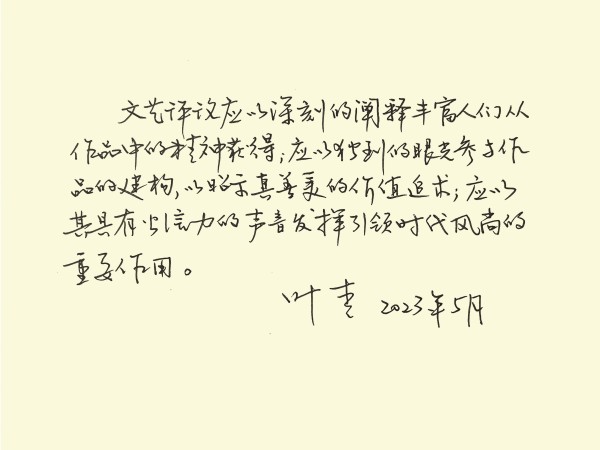 文艺评议应以深刻的阐释丰富人们从
作品中的精神获得；应以独到的眼光参与作
品的建构，以昭示真善美的价值追求；应以
其具有公信力的声音发挥引领时代风尚的
重要作用。
叶青 2023年5月